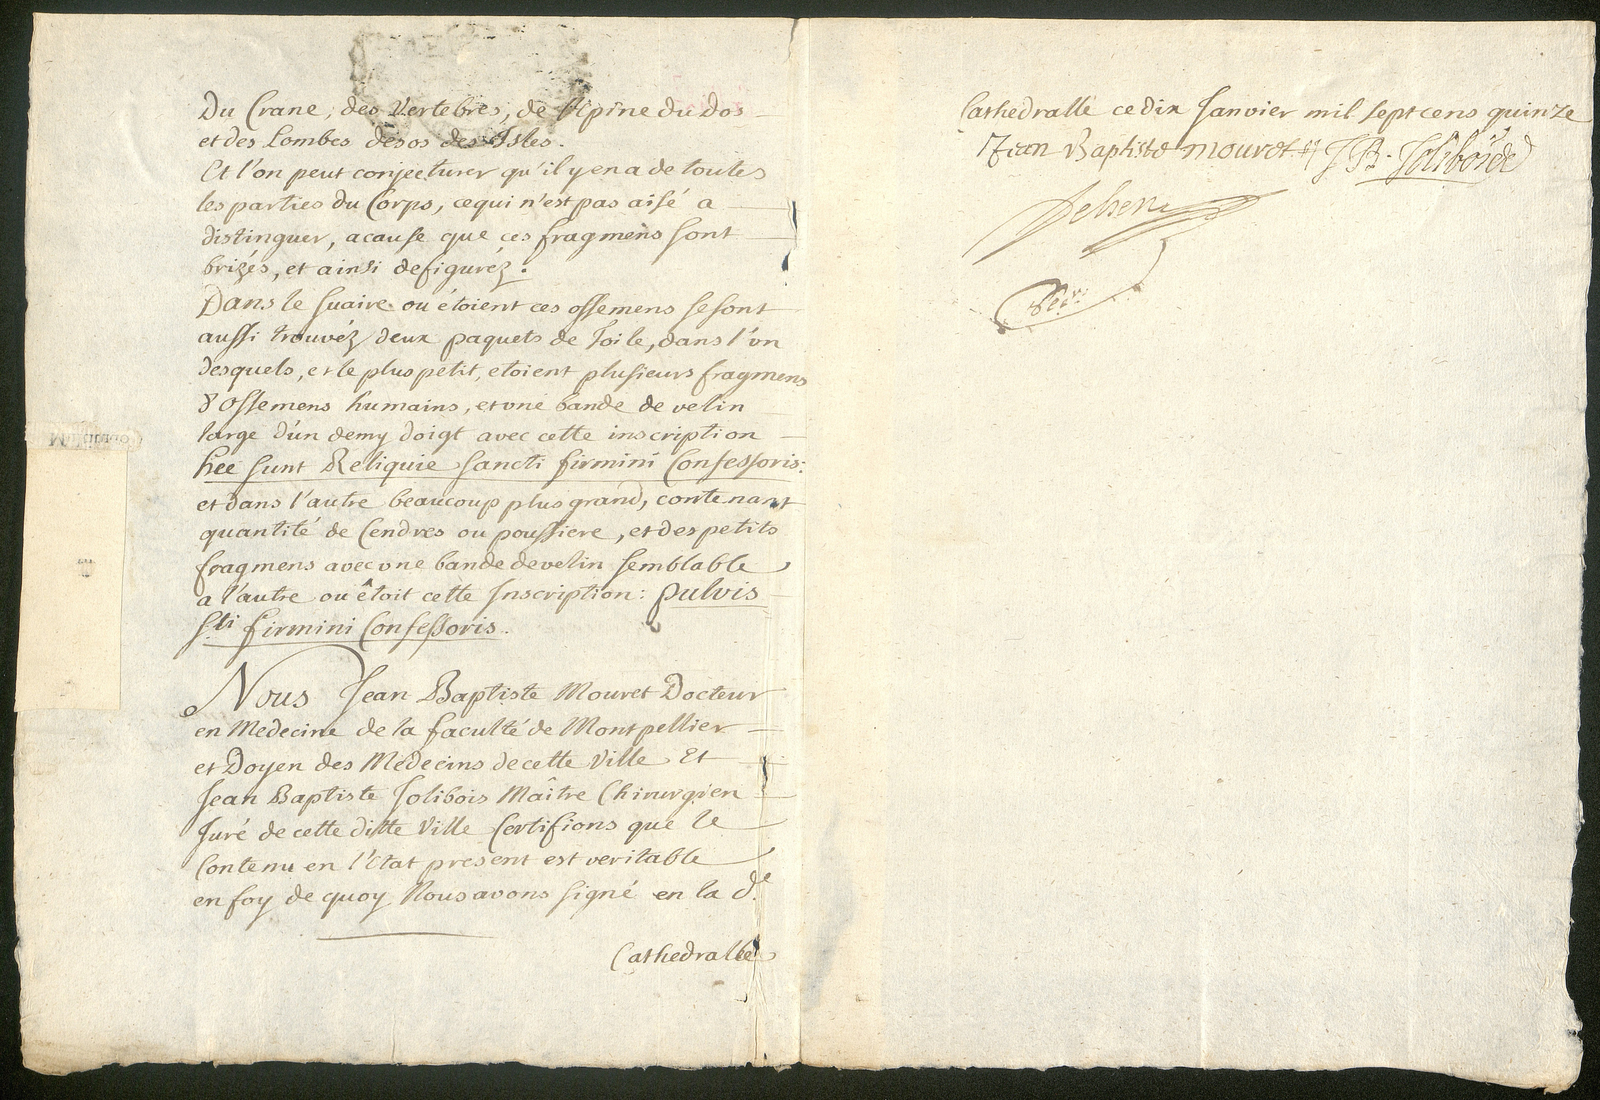 Du Crane, des Vertebres, de l'Epine du Dos
et des Lombes des os des Isles.
Et l'on peut conjecturer qu'il y en a de toutes
les parties du Corps, ce qui n'est pas aisé a
distinguer, a cause que ces fragmens sont
brizés, et ainsi defiguréz.
Dans le suaire ou étoient ces ossemens se sont
aussi trouvéz deux paquets de Toile, dans l'un
desquels, et le plus petit, etoient plusieurs fragmens
d'Ossemens humains, et une bande de velin
large d'un demy doigt avec cette inscription
hee sunt Reliquie sancti firmini Confessoris:
et dans l'autre beaucoup plus grand, contenant
quantité de Cendres ou poussiere, et des petits
fragmens avec une bande de velin semblable
a l'autre ou êtoit cette Inscription: pulvis
Sti firmini Confessoris.
Nous Jean Baptiste Mouret Docteur
en Medecine de la faculté de Montpellier
et Doyen des Médecins de cette Ville Et
Jean Baptiste Jolibois Maître Chirurgien
Juré de cette ditte Ville Certifions que le
Contenu en l'Etat present est veritable
en foy de quoy Nous avons signé en la d.e
Cathedralle
Cathedralle ce dix Janvier mil sept cens quinze
Jean Baptiste mouret J B. Jolibois